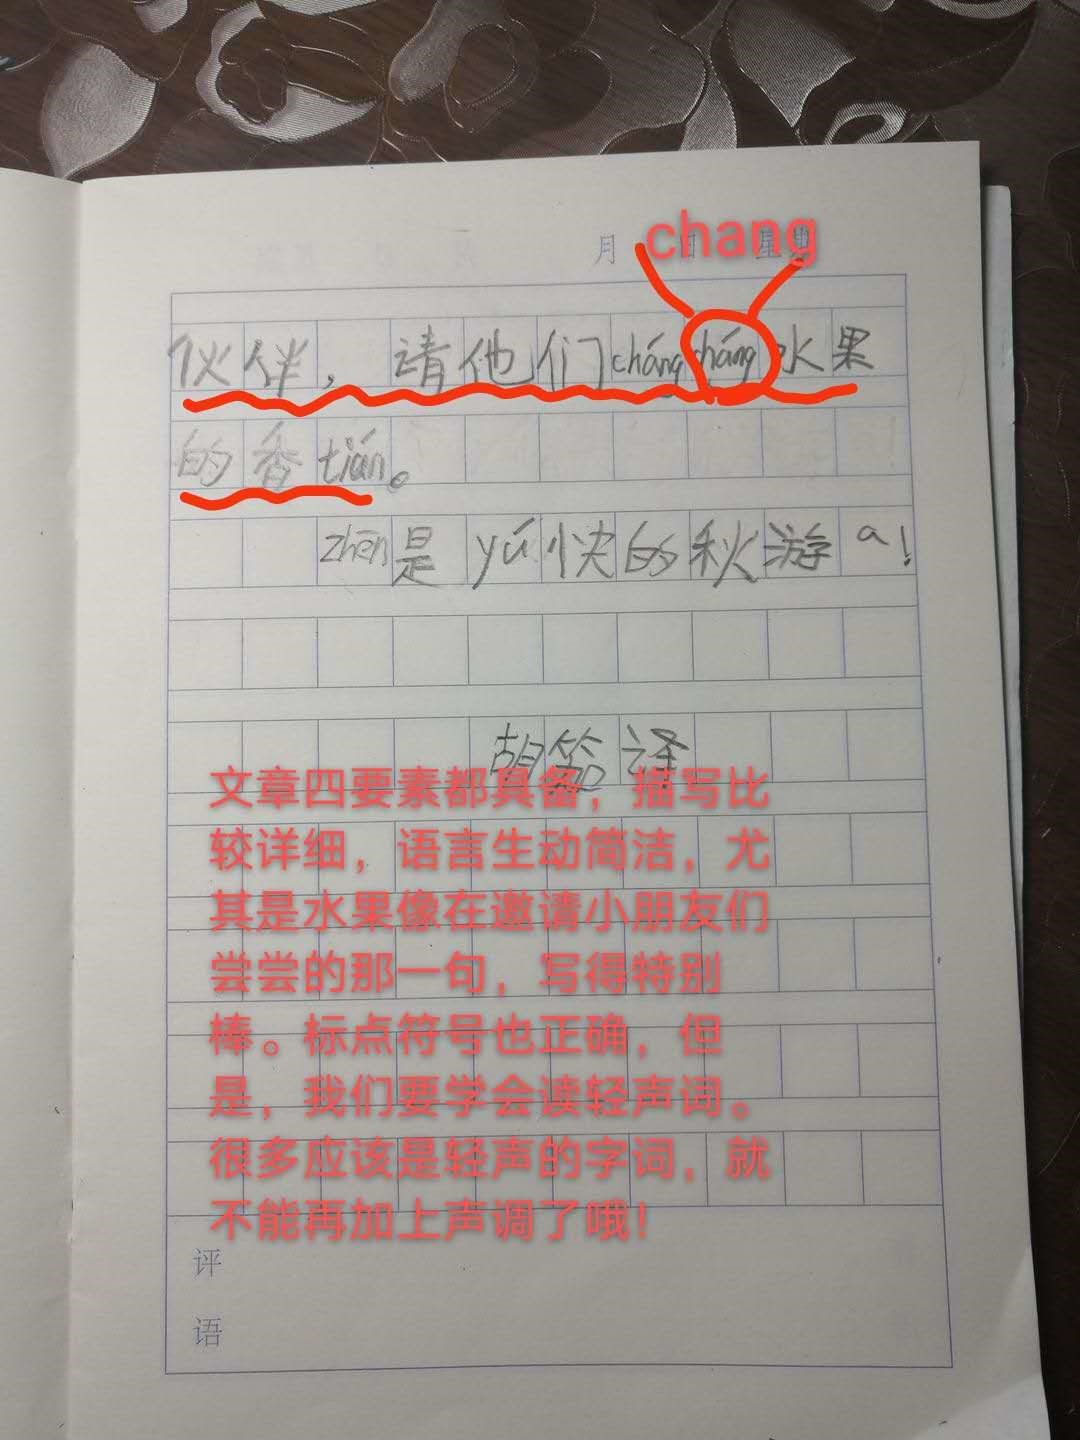 chang
月 日 星期
伙伴，请他们cháng cháng水果
的香tián。
zhēn是yú快的秋游a！
胡 译
文章四要素都具备，描写比
较详细，语言生动简洁，尤
其是水果像在邀请小朋友们
尝尝的那一句，写得特别
棒。标点符号也正确，但
是，我们要学会读轻声词。
很多应该是轻声的字词，就
不能再加上声调了哦！
评
语